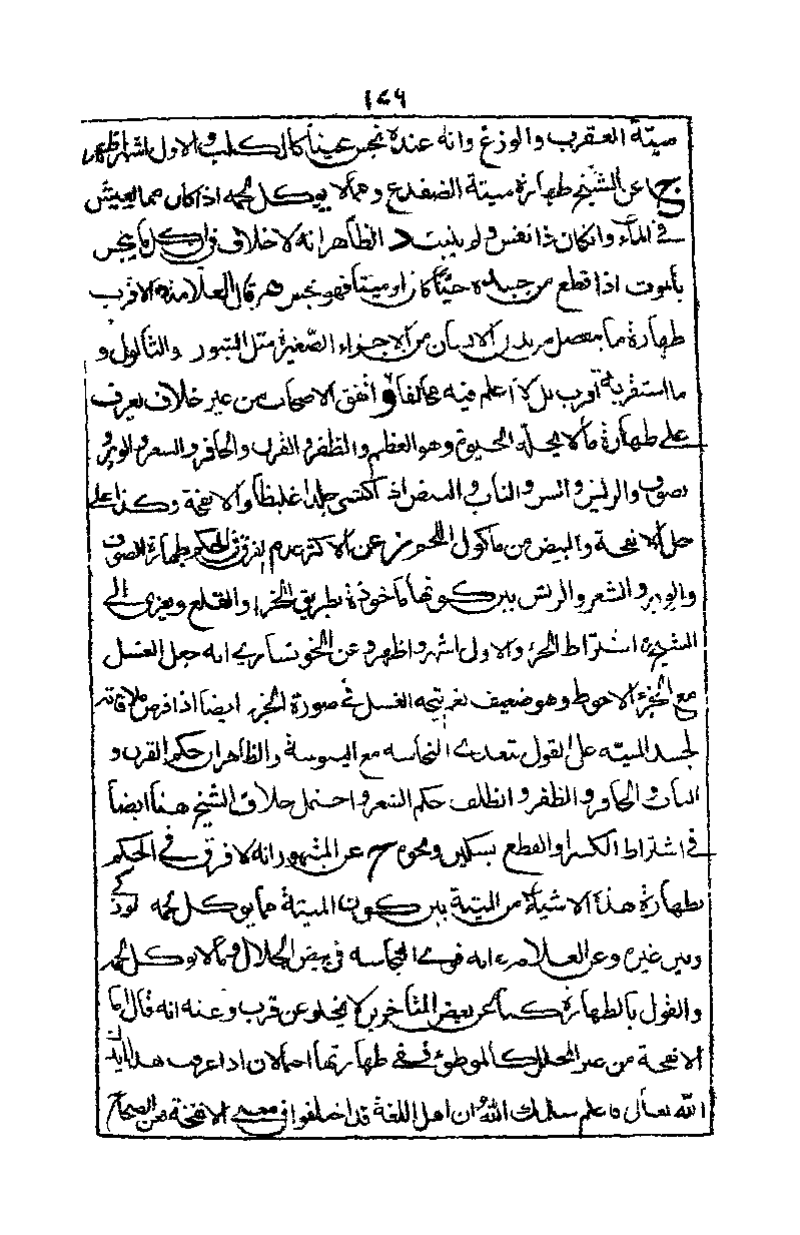 ١٤٦
ميتة العقرب والوزغ وانه عنده نجس عيناً كالكلب والاول اشهر اظهر
ج عن الشيخ طهارة ميتة الضفدع ومما لا يوكل لحمه اذا كان مما يعيش
في الماء وانكان ذا نفس ولم يثبت د الظاهر انه لا خلاف في ان كل ما ينجس
بالموت اذا قطع من جسده حيّاً كان او ميتاً فهو نجس هـ قال العلامة ره الاقرب
طهارة ما ينفصل من بدن الانسان من الاجزاء الصّغيرة مثل البثور والثالول و
ما استقربه اقرب بل لا اعلم فيه مخالفاً و اتفق الاصحاب من غير خلاف يعرف
على طهارة ما لا يحله الحيوة وهو العظم والظفر والقرن والحافر والشعر والوبر و
صوف والريش والسن والناب والبيض اذا اكتسى جلدا غليظاً والانفحة وكذا على
حل الانفحة والبيض من ماكول اللحم ز عن الاكثر عدم الفرق في الحكم بطهارة الصوف
والوبر والشعر والريش بين كونها ماخوذة بطريق الجز او القلع ويعزى الى
الشيخ ره اشتراط الجز والاول اشهر واظهر وعن الخونساري انه جعل الغسل
مع الجز الاحوط وهو ضعيف نعم يتجه الغسل في صورة الجز ايضا اذا فرض ملاقاته
لجسد الميتة على القول بتعدي النجاسة مع اليبوسة والظاهر ان حكم القرن و
الناب والحافر والظفر والظلف حكم الشعر واحتمل خلاف الشيخ هنا ايضاً
في اشتراط الكسر او القطع بسكين ونحوه ح عن المشهور انه لا فرق في الحكم
بطهارة هذه الاشياء من الميتة بين كون الميتة مما يوكل لحمه
وبين غيره وعن العلامة ره انه قوى النجاسة في بيض الجلال وما لا يوكل لحمه
والقول بالطهارة كما عن بعض المتاخرين لا يخلو عن قرب وعنه انه قال اما
الانفحة من غير المحلل كالموطوء ففي طهارتها احتمالان اذا عرفت هذا ايدك
الله تعالى فاعلم سلمك الله ان اهل اللغة قد اختلفوا في معنى الانفحة فعن الصحاح